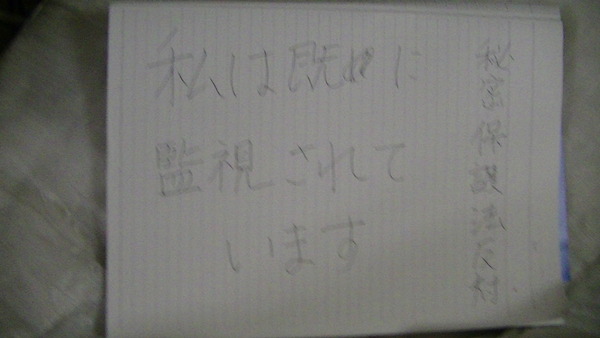 私は既に
監視されて
います
秘密保護法反対